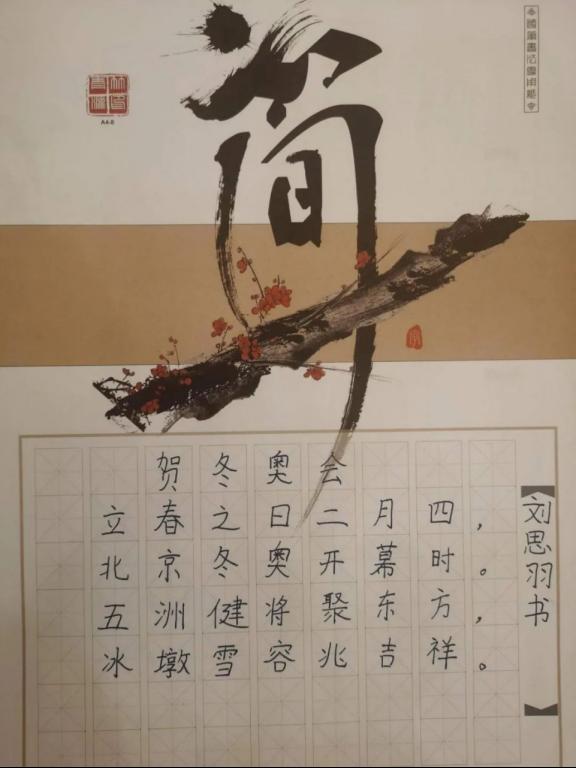 简
A4-8
贺冬奥会
立春之日二月四，
北京冬奥开幕时。
五洲健将聚东方，
冰墩雪容兆吉祥。
刘思羽书